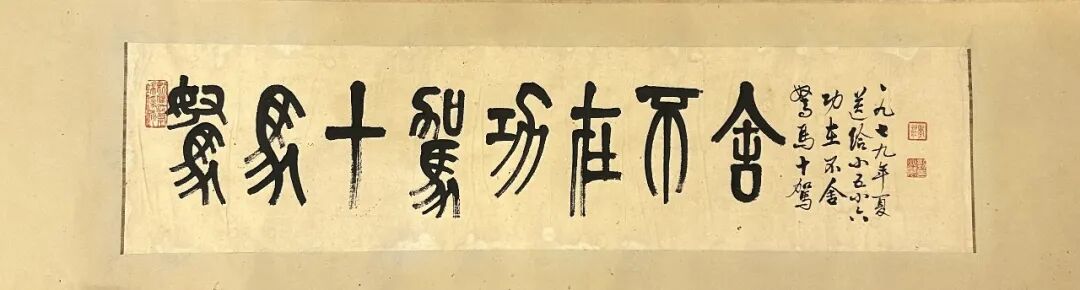 駑馬十駕功在不舍
駑馬十駕
功在不舍
送给小五小六
一九七九年夏